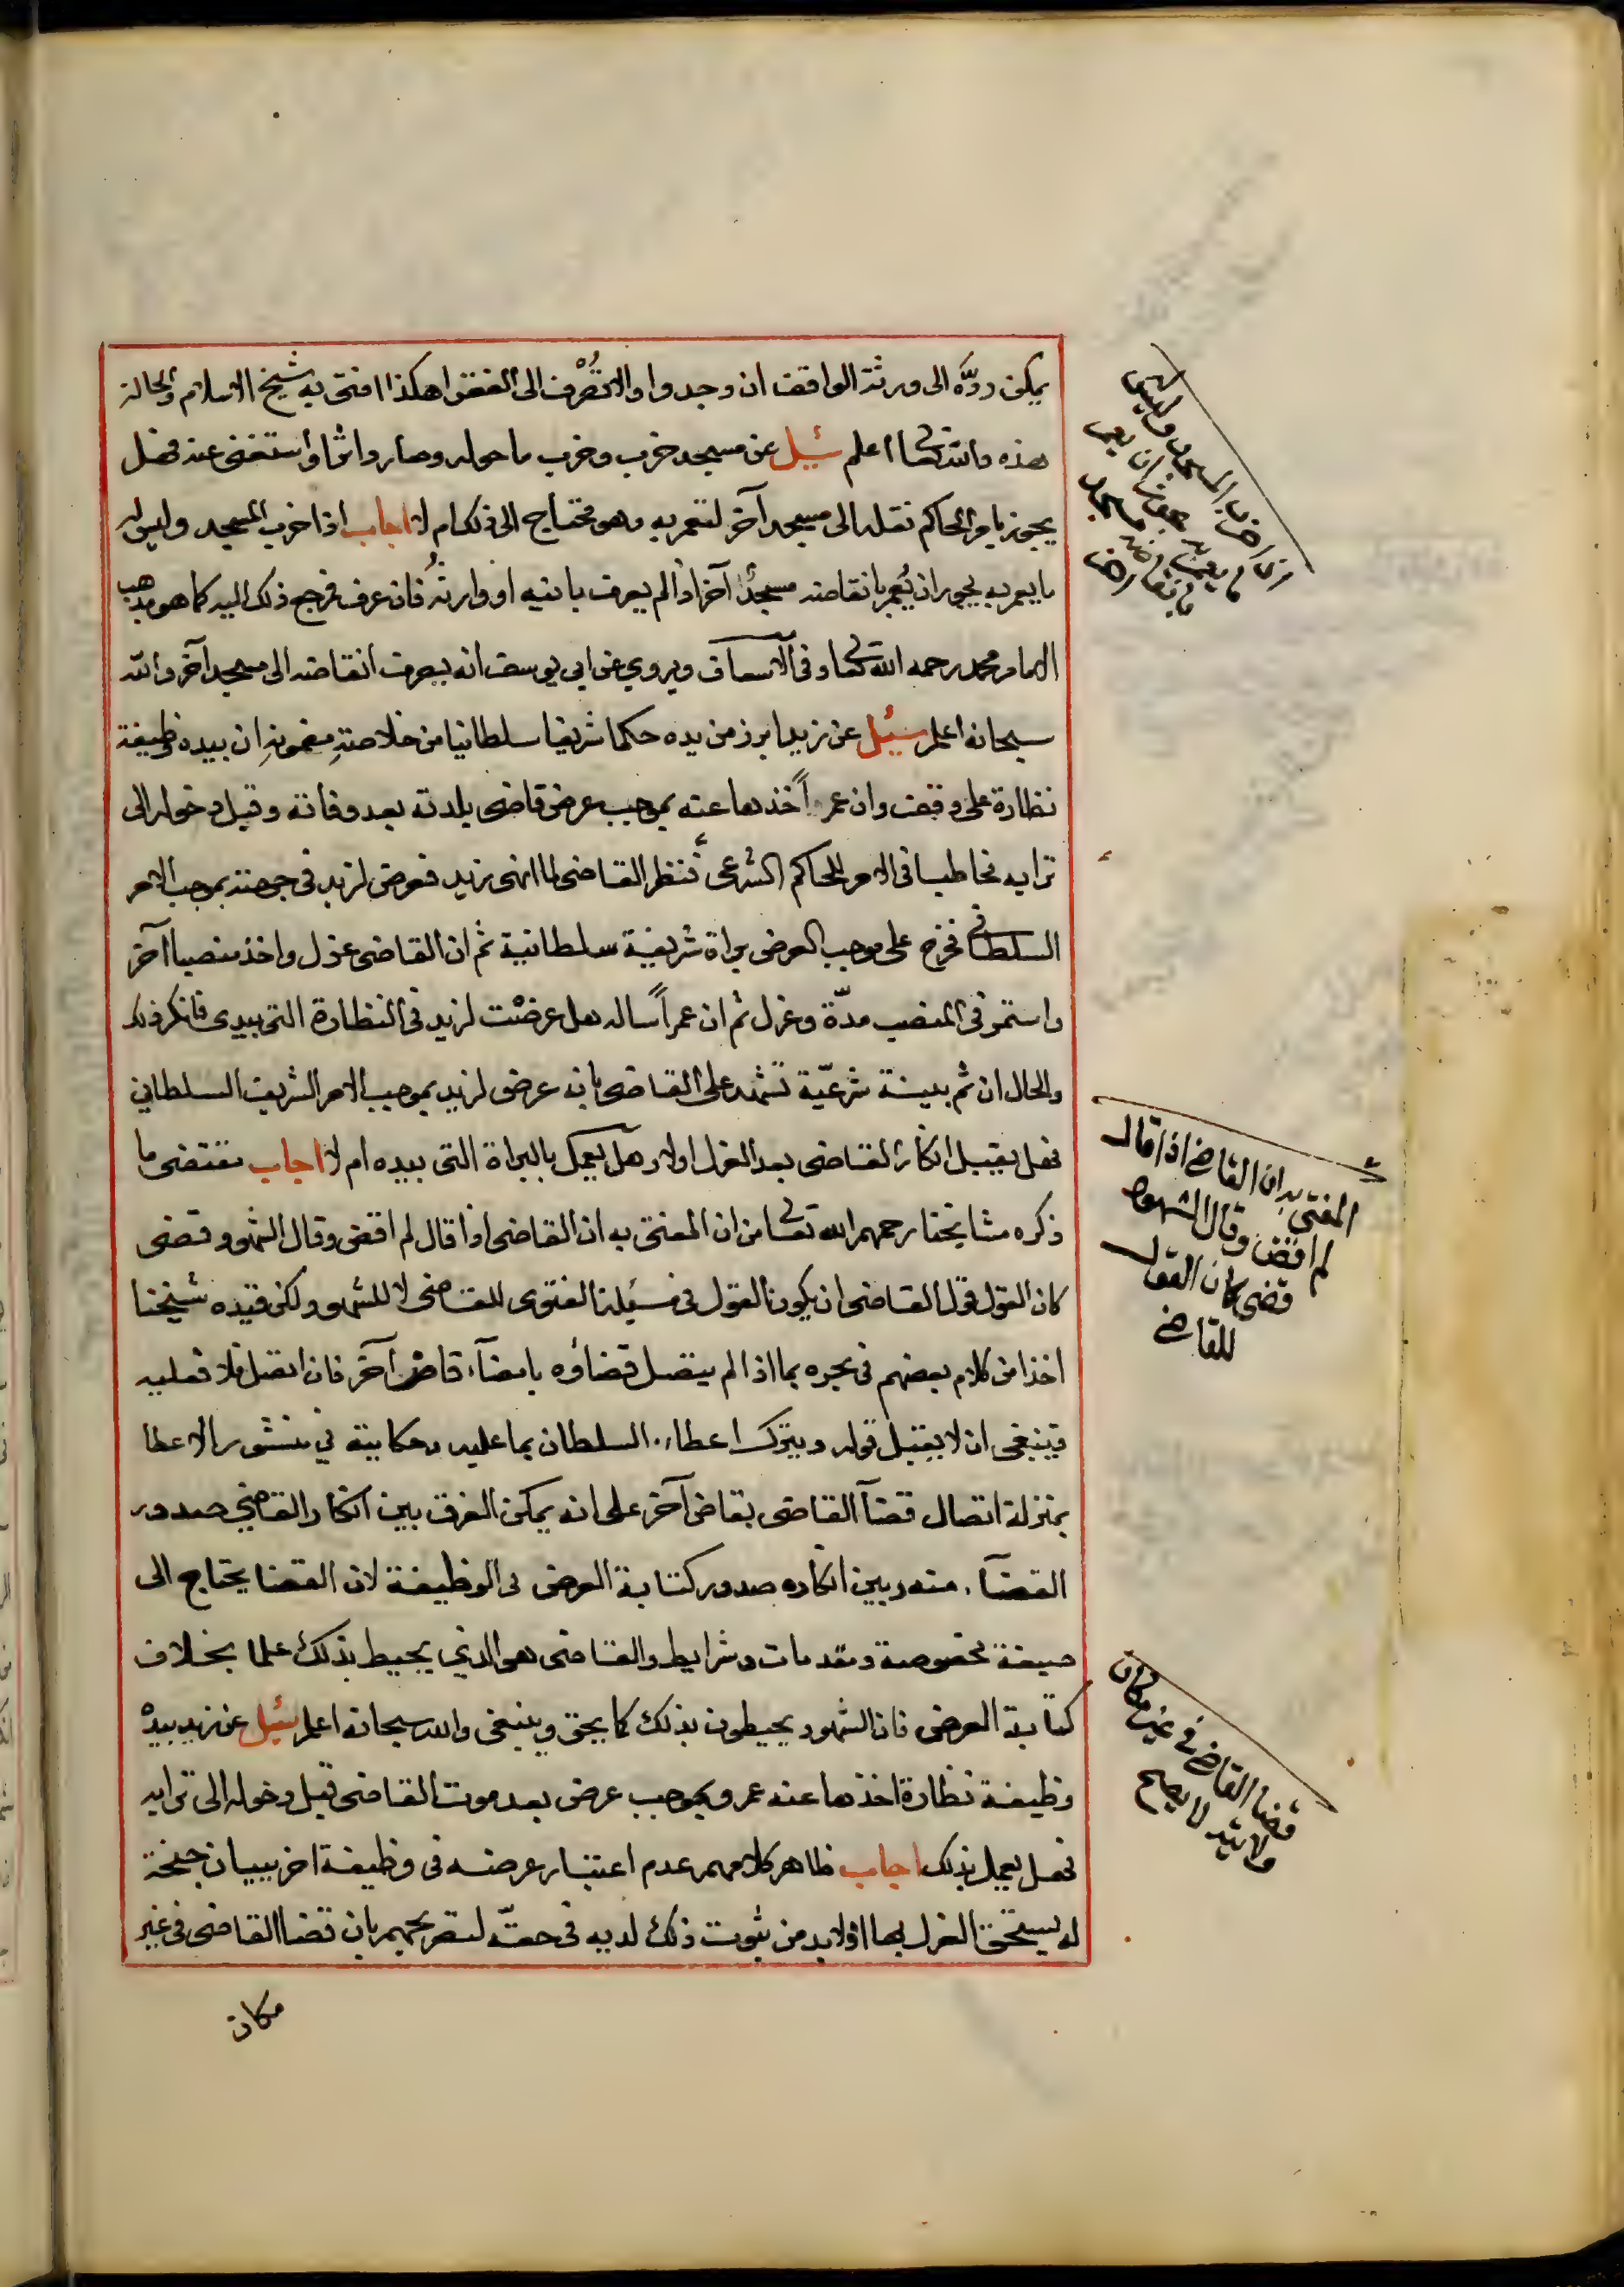 يمكن ردّه الى ورثة الواقف ان وجدوا والا تصرف الى الفقرا هكذا افتى به شيخ الاسلام والحالة
هذه والله تعالى اعلم سُئِل عن مسجد خرب وخرب ما حوله وصار واثرا واستغنى عنه فهل
يجوز بامر الحاكم نقله الى مسجد آخر لتعمر به وهو محتاج الى ذلك ام لا اجاب اذا خرب المسجد وليس له
ما يعمر به يجوز ان يُعمر بانقاضه مسجدًا آخر اذا لم يعرف بانيه او وارثه فان عرف فرجع ذلك اليه كما هو مذهب
الامام محمد رحمه الله تعالى وفي الاسعاف ويروي عن ابي يوسف انه يصرف انقاضه الى مسجد آخر والله
سبحانه اعلم سُئِل عن زيد ابرز من يده حكما شريفا سلطانيا من خلاصة مضمونه ان بيده وظيفة
نظارة على وقف وان عمراً اخذها عنه بموجب عرض قاضي بلدته بعد وفاته وقبل دخوله الى
ترابه مخاطبا في الامر للحاكم الشرعي فنظر القاضي لما انهى زيد فعرض لزيد في جهته بموجب الامر
السلطاني فخرج على موجب العرض براة شريفة سلطانية ثم ان القاضي عزل واخذ منصبا آخر
واستمر في المنصب مدّة وعزل ثم ان عمراً ساله هل عرضت لزيد في النظارة التي بيدي فانكر ذلك
والحال ان ثم بينة شرعيّة تشهد على القاضي بانه عرض لزيد بموجب الامر الشريف السلطاني
فهل يقبل انكار القاضي بعد العزل اولا وهل يعمل بالبراة التي بيده ام لا اجاب مقتضى ما
ذكره مشايخنا رحمهم الله تعالى من ان المفتى به ان القاضي اذا قال لم اقض وقال الشهود قضى
كان القول قول القاضي ان يكون القول في مسئلة الفتوى للقاضي لا للشهود ولكن قيده شيخنا
اخذا من كلام بعضهم في بحره بما اذا لم يتصل قضاؤه بامضآء قاض آخر فان اتصل فلا فعليه
فينبغي ان لا يقبل قوله ويترك اعطاء السلطان بما عليه وحكايته في منشور الاعطا
بمنزلة اتصال قضآ القاضي بقاض آخر على انه يمكن الفرق بين انكار القاضي صدور
القضآء منه وبين انكاره صدور كتابة العرض في الوظيفة لان القضا يحتاج الى
صيغة مخصوصة ومقدمات وشرايط والقاضي هو الذي يحيط بذلك علما بخلاف
كتابة العرض فان الشهود يحيطون بذلك كما يحق وينبغي والله سبحانه اعلم سُئِل عن زيد بيده
وظيفة نظارة اخذها عنه عمرو بموجب عرض بعد موت القاضي قبل دخوله الى ترابه
فهل يعمل بذلك اجاب ظاهر كلامهم عدم اعتبار عرضه في وظيفة اخر ببيان جنحة
له يستحق العزل بها اذ لا بد من ثبوت ذلك لديه في حقّه لتصريحهم بان قضا القاضي في غير
مكان
اذا خرب المسجد وليس له
ما يعمر به يجوز ان يعمر
بانقاضه مسجد
اخر
المفتى به ان القاضي اذا قال
لم اقض وقال الشهود
قضى كان القول
للقاضي
قضا القاضي في غير مكان
ولايته لا يصح